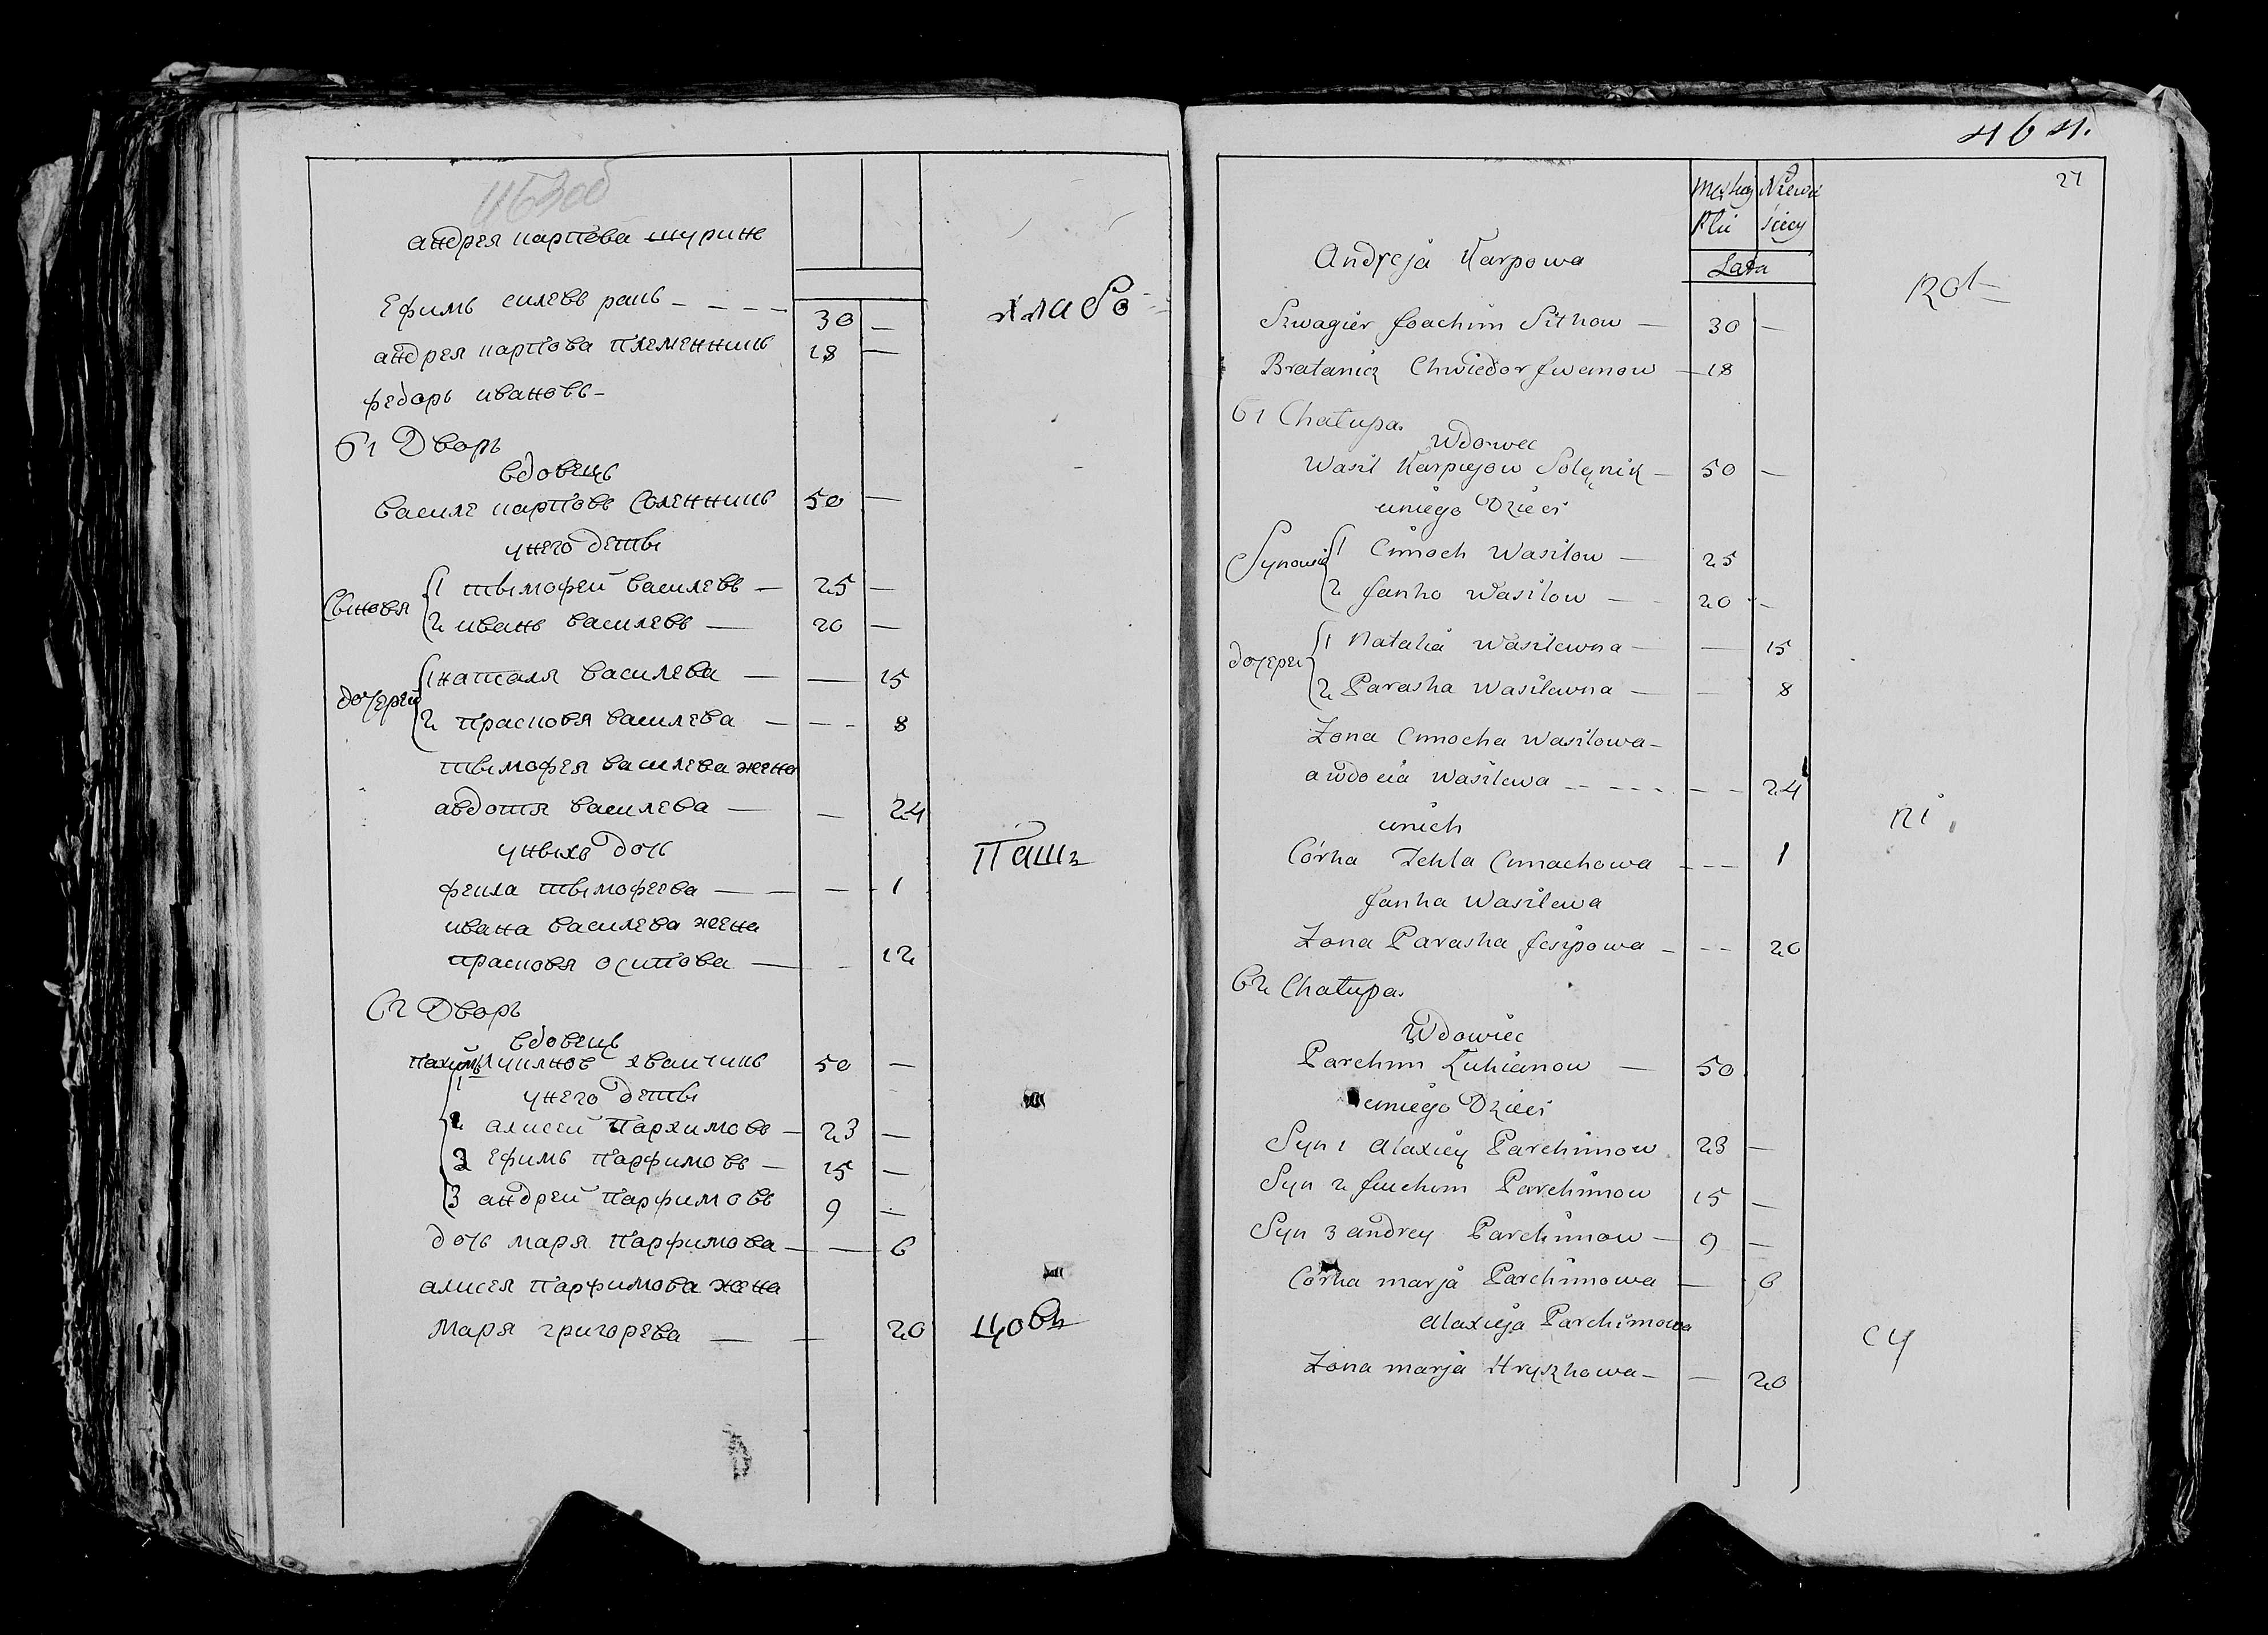 463об
андрея карпова шурине
Ефимъ силевъ ракъ - - - - 30 —
хлабо
андрея карпова племенникъ 18 —
федоръ ивановъ -
61 Дворъ
вдовецъ
василе карповъ Соленникъ 50 —
унего детѣ
Сыновя
1 тимофей василевъ — 25 —
2 иванъ василевъ — 20 —
дочерей
1 наталя василева — — 15
2 прасковя василева — - - 8
тимофея василева жена
авдотя василева — — 24
унихъ дочъ
Пашъ
фекла тимофеева — — - 1
ивана василева жена
прасковя осипова — - 12
62 Дворъ
вдовецъ
50 —
унего детѣ
алисей Пархимовъ — 23 —
2 Ефимъ Парфимовъ — 15 —
3 андрей Парфимовъ 9 —
дочъ маря Парфимова — — 6
алисея Парфимова жена
Маря григорева — — 20
464.
27
Męzkiey Niewie
Płći sciey
Lata
Andreja Karpowa
Szwagier Joachim Sitkow — 30 —
Bratanicz Chwiedor Jwanow — 18
61 Chałupa.
Wdowiec
Wasil Karpiejow Solęnik — 50 —
uniego Dzieci
Synowie
1 Cimoch Wasilow — 25
2 Janko Wasilow — 20 -
дочерей
1 Natalia Wasilewna — — 15
2 Paraska Wasilewna — — 8
Zona Cimocha Wasilowa —
awdocia Wasilewa - - - - - - - 24
unich
ni
Córka Tekla Cimachowa - - - 1
Janka Wasilewa
Zona Paraska Jesipowa - - - 20
62 Chałupa.
Wdowiec
Parchim Łukianow — 50
uniego Dzieci
Syn 1 Alaxiey Parchimow 23 —
Syn 2 Juchim Parchimow 15 —
Syn 3 andrey Parchimow — 9 —
Córka marja Parchimowa — 6
Alaxieja Parchimowa
cy
Zona marja Hryszkowa — — 20